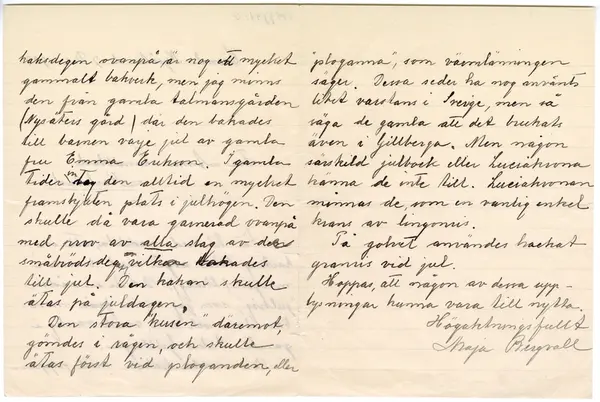 kaksdegen ovanpå är nog ett mycket
gammalt bakverk, men jag minns
den från gamla talmansgården
(Nysäters gård) där den bakades
till barnen varje jul av gamla
fru Emma Erikson. I gamla
tider intog den alltid en mycket
framskjuten plats i julhögen. Den
skulle då vara garnerad ovanpå
med prov av alla slag av de
småbrödsdeg, vilka bakades
till jul. Den kakan skulle
ätas på juldagen.
Den stora "kusen" däremot,
gömdes i sägen, och skulle
ätas först vid ploganden, eller
"ploganna", som värmlänningen
säger. Dessa seder ha nog använts
litet varstans i Sverige, men så
säga de gamla att det brukats
även i Gillberga. Men någon
särskild julbock eller Luciakrona
känna de inte till. Luciakronan
minnas de, som en vanlig enkel
krans av lingonris.
På golvet användes hackat
granris vid jul.
Hoppas, att någon av dessa upp-
lysningar kunna vara till nytta.
Högaktningsfullt
Maja Bergvall